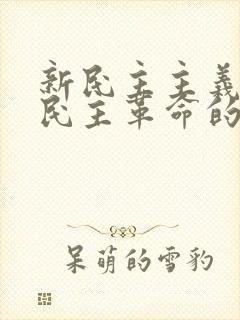 新民主主義
民主革命的
呆萌的雪豹